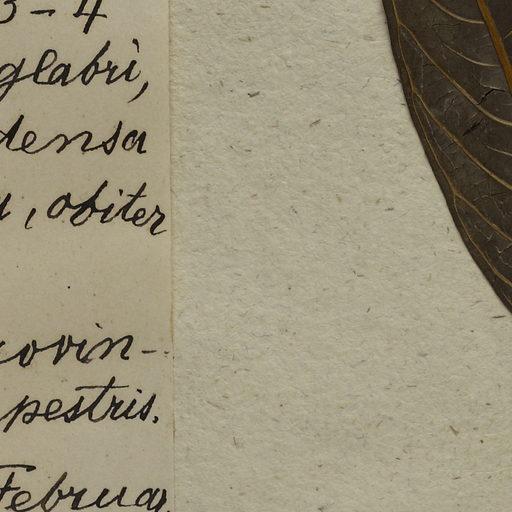 3-4
glabri,
densa
, obiter
ovin-
pestris.
Februar